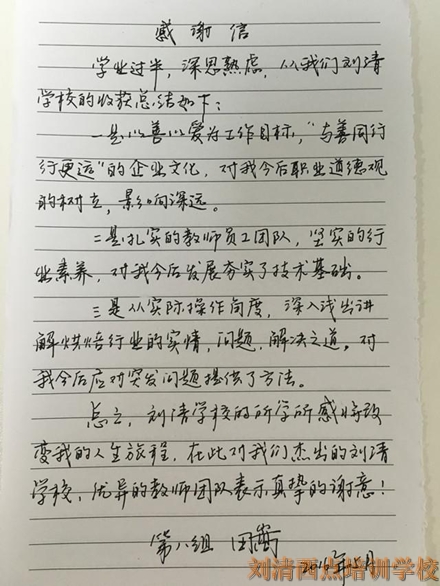 感谢信
学业过半，深思熟虑，从我们刘清
学校的收获总结如下：
一是以善以爱为工作目标，“与善同行
行更远”的企业文化，对我今后职业道德观
的树立，影响深远。
二是扎实的教师员工团队，坚实的行
业素养，对我今后发展夯实了技术基础。
三是从实际操作角度，深入浅出讲
解烘焙行业的实情，问题，解决之道，对
我今后应对突发问题提供了方法。
总之，刘清学校的所学所感将改
变我的人生旅程，在此对我们杰出的刘清
学校，优异的教师团队表示真挚的谢意！
第八组
刘清西点培训学校